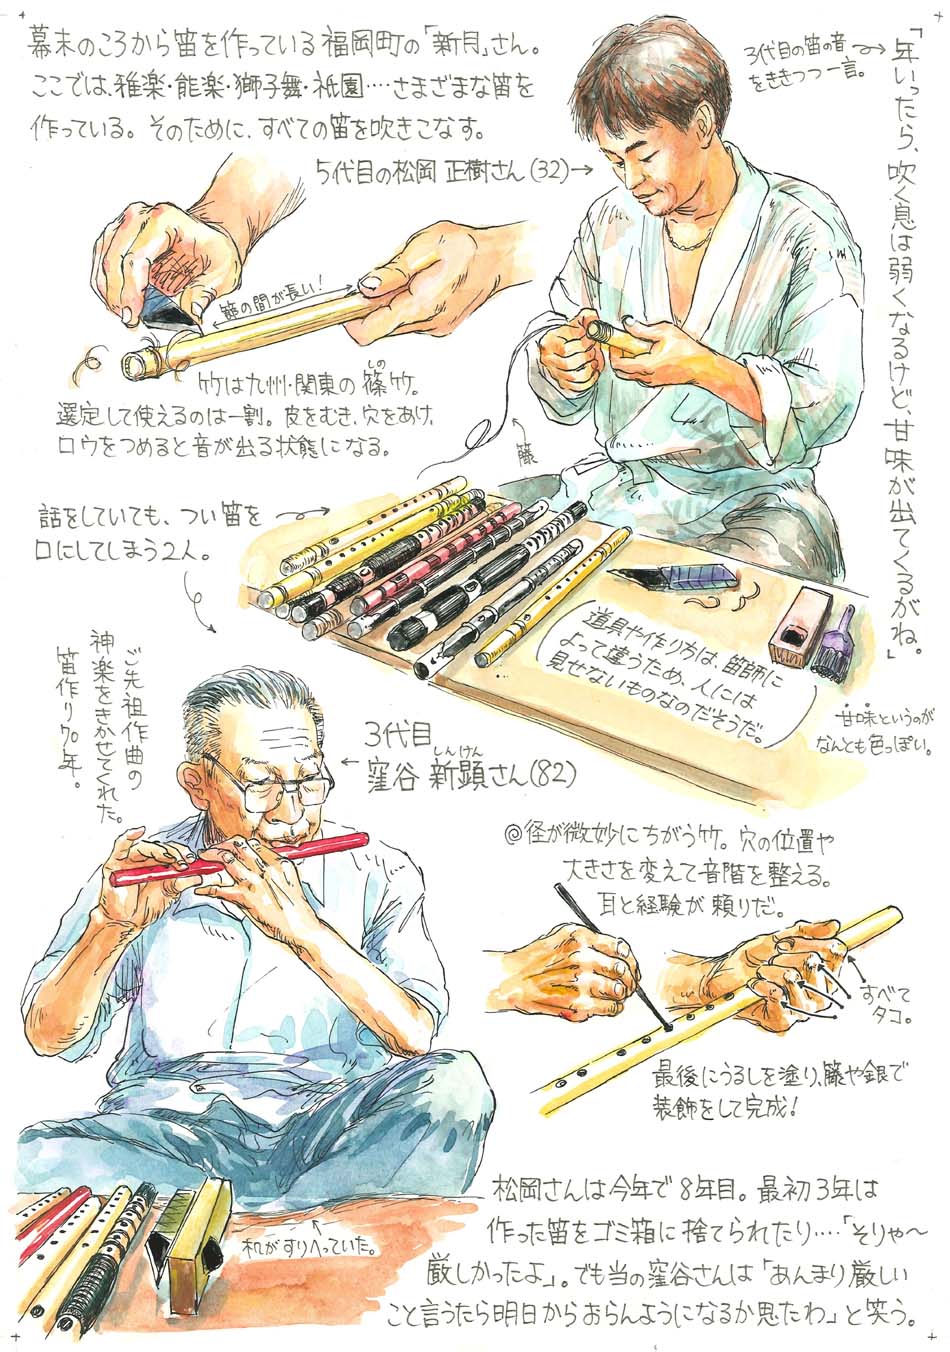 幕末のころから笛を作っている福岡町の「新月」さん。
ここでは、雅楽・能楽・獅子舞・祇園‥‥さまざまな笛を
作っている。そのために、すべての笛を吹きこなす。
5代目の松岡 正樹さん(32)→
3代目の笛の音
をききつつ一言。
「年いったら、吹く息は弱くなるけど、甘味が出てくるがね。」
節の間が長い!
竹は九州・関東の篠竹。
しの
選定して使えるのは一割。皮をむき、穴をあけ、
ロウをつめると音が出る状態になる。
籐
話をしていても、つい笛を
口にしてしまう2人。
道具や作り方は、笛師に
よって違うため、人には
見せないものなのだそうだ。
甘味というのが
なんとも色っぽい。
ご先祖作曲の
神楽をきかせてくれた。
笛作り70年。
3代目
しんけん
窪谷 新顕さん(82)
◎径が微妙にちがう竹。穴の位置や
大きさを変えて音階を整える。
耳と経験が頼りだ。
すべて
タコ。
最後にうるしを塗り、籐や銀で
装飾をして完成!
机がすりへっていた。
松岡さんは今年で8年目。最初3年は
作った笛をゴミ箱に捨てられたり‥‥「そりゃ〜
厳しかったよ」。でも当の窪谷さんは「あんまり厳しい
こと言うたら明日からおらんようになるか思たわ」と笑う。